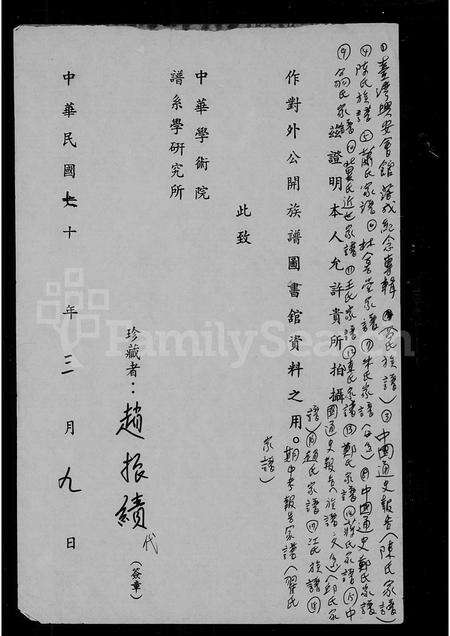 ①臺灣興安會館落成紀念專輯②呂氏族譜)③中國通史報告(陳氏家譜)
④陳氏族譜⑤蕭氏家譜⑥林善堂家譜⑦朱氏家譜⑧中國通史鄭氏家譜
⑨翁氏家譜⑩黃氏近世家譜⑪王氏家譜⑫卓氏家譜⑬鄭氏家譜⑭蔣氏家譜⑮中
國通史報告族譜
茲證明本人允許貴所拍攝
譜)⑯趙氏家譜⑰江氏族譜⑱
作對外公開族譜圖書館資料之用。
期中考報告家譜(翟氏
家譜)
此致
中華學術院
譜系學研究所
珍藏者:趙振績代(簽章)
中華民國七十年三月九日
FamilySearch